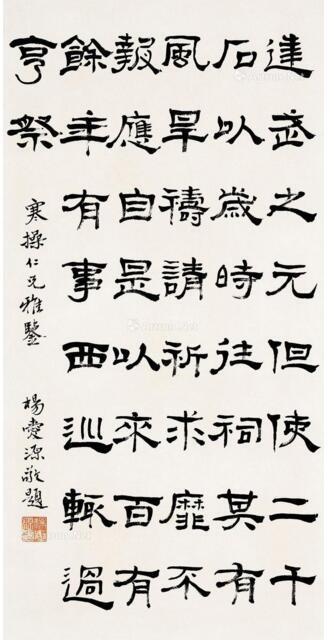 建武之元但使二千
石以歲時往祠其有
風旱禱請祈求靡不
報應自是以來百有
餘年有事西巡輒過
亨祭
寒操仁兄雅鑒
楊愛源敬題